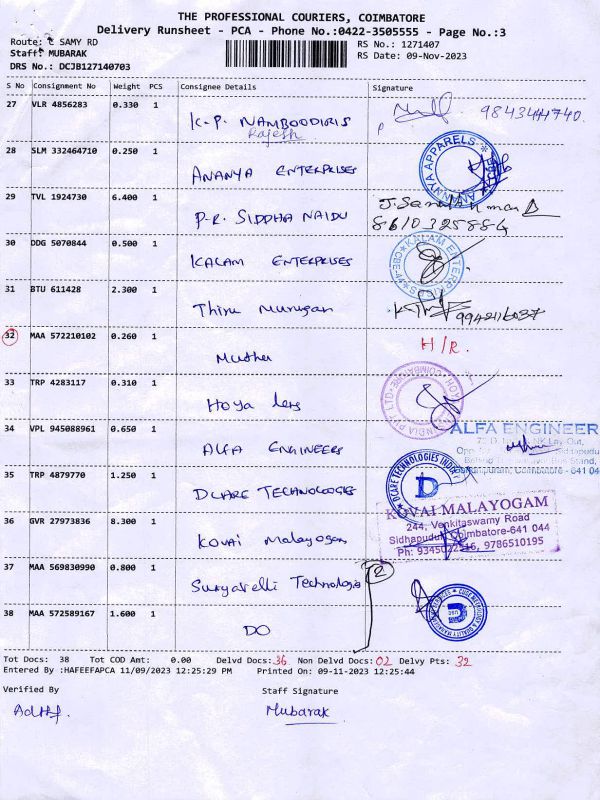 THE PROFESSIONAL COURIERS, COIMBATORE
Delivery Runsheet - PCA - Phone No.:0422-3505555 - Page No.:3
Route: C SAMY RD
RS No.: 1271407
Staff: MUBARAK
RS Date: 09-Nov-2023
DRS No.: DCJB127140703
S No Consignment No Weight PCS Consignee Details Signature
27 VLR 4856283 0.330 1
K.P. NAMBOODIRIS
Rajesh
9843444740
28 SLM 332464710 0.250 1
ANANYA ENTERPRISES
29 TVL 1924730 6.400 1
P.R. SIDDHA NAIDU
8610325884
30 DDG 5070844 0.500 1
KALAM ENTERPRISES
KALAM ENTERPRISES
31 BTU 611428 2.300 1
Thiru Murugan
32 MAA 572210102 0.260 1
Muthu
H/R.
33 TRP 4283117 0.310 1
Hoya lens
34 VPL 945088961 0.650 1
ALFA ENGINEERS
ALFA ENGINEER
35 TRP 4879770 1.250 1
DCARE TECHNOLOGIES
DCARE TECHNOLOGIES INDIA
D
36 GVR 27973836 8.300 1
Kovai Malayogam
KOVAI MALAYOGAM
244, Venkitaswamy Road
Sidhapudur, Coimbatore-641 044
Ph: 9345022516, 9786510195
37 MAA 569830990 0.800 1
Suryavelli Technologies
2
38 MAA 572589167 1.600 1
DO
Tot Docs: 38 Tot COD Amt: 0.00 Delvd Docs: 36 Non Delvd Docs: 02 Delvy Pts: 32
Entered By :HAFEEFAPCA 11/09/2023 12:25:29 PM Printed On: 09-11-2023 12:25:44
Verified By Staff Signature
Mubarak